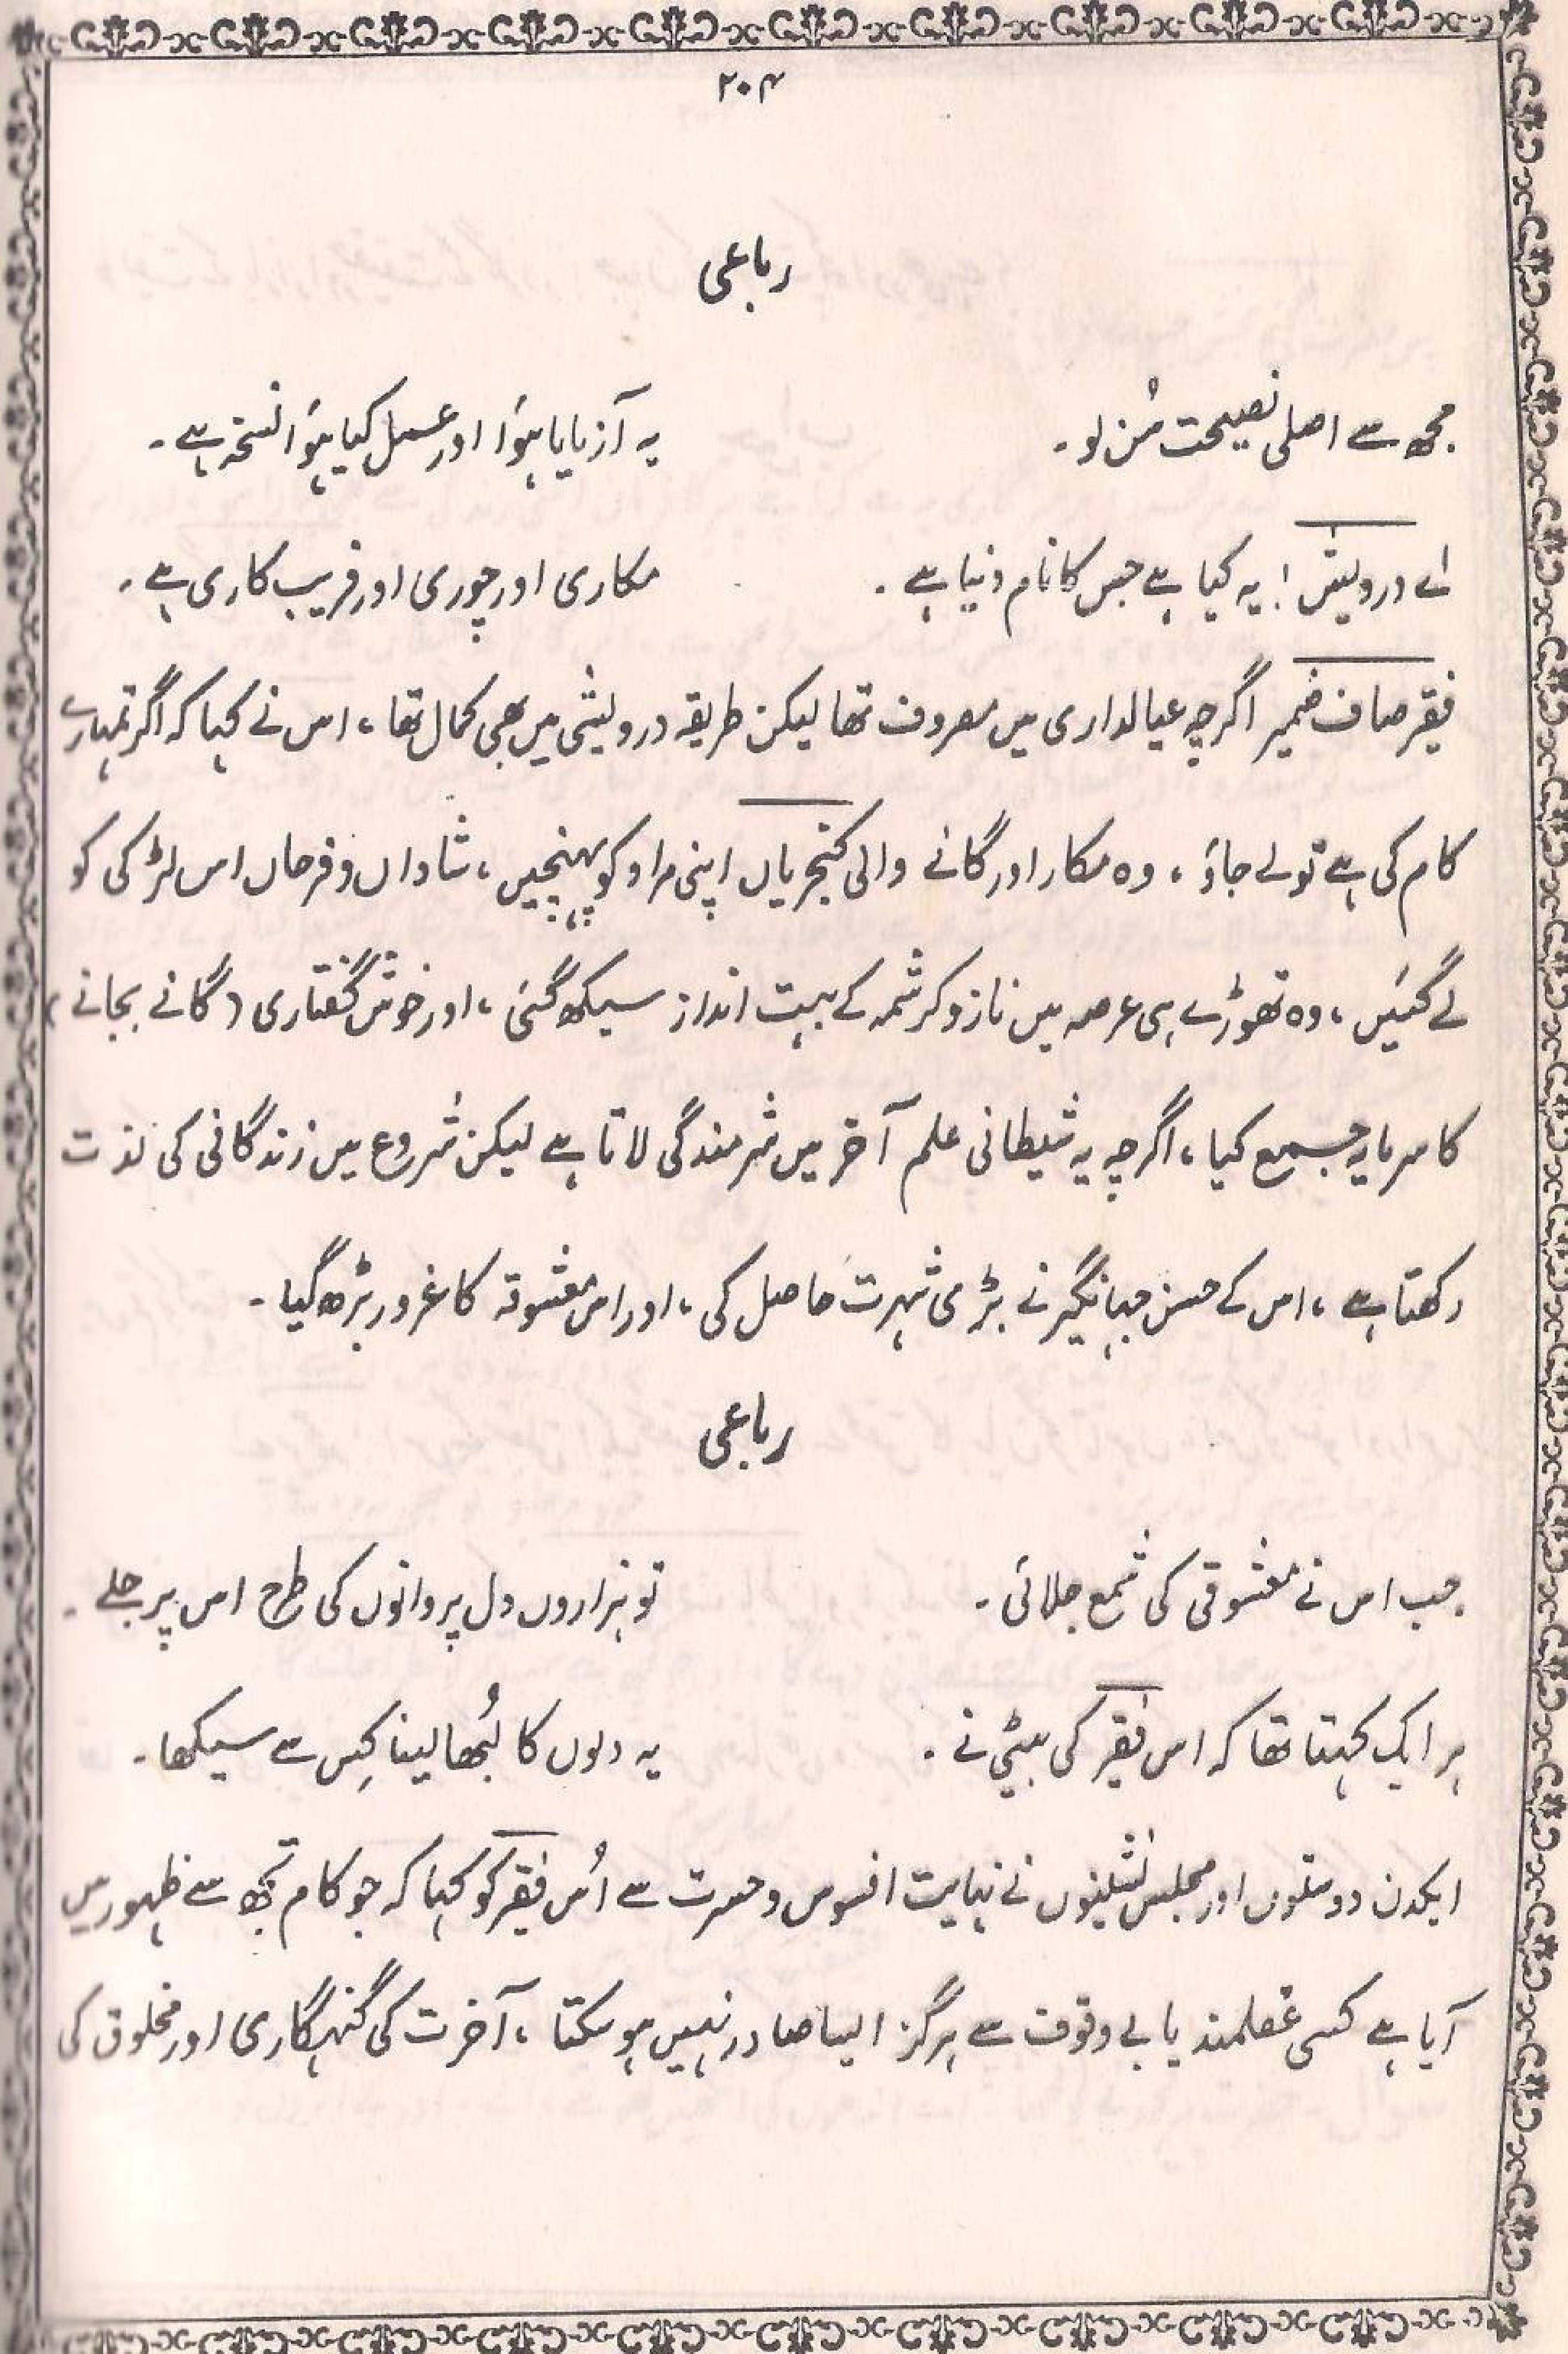 ۲۰۴
رباعی
مجھ سے اصلی نصیحت سُن لو۔ یہ آزمایا ہؤا اور عمل کیا ہؤا نسخہ ہے۔
اے درویش! یہ کیا ہے جس کا نام دنیا ہے۔ مکاری اور چوری اور فریب کاری ہے۔
فقیر صاف ضمیر اگرچہ عیالداری میں مصروف تھا لیکن طریقہ درویشی میں بھی کمال تھا، اس نے کہا کہ اگر تمہارے
کام کی ہے تو لے جاؤ، وہ مکار اور گانے والی کنجریاں اپنی مراد کو پہنچیں، شاداں و فرحاں اس لڑکی کو
لے گئیں، وہ تھوڑے ہی عرصہ میں ناز و کرشمہ کے بہت انداز سیکھ گئی، اور خوش گفتاری (گانے بجانے)
کا سرمایہ جمع کیا، اگرچہ یہ شیطانی علم آخر میں شرمندگی لاتا ہے لیکن شروع میں زندگانی کی لذت
رکھتا ہے، اس کے حسن جہانگیر نے بڑی شہرت حاصل کی، اور اس معشوقہ کا غرور بڑھ گیا۔
رباعی
جب اس نے معشوقی کی شمع جلائی۔ تو ہزاروں دل پروانوں کی طرح اس پر جلے۔
ہر ایک کہتا تھا کہ اس فقیر کی بیٹی نے۔ یہ دلوں کا لُبھا لینا کِس سے سیکھا۔
ایکدن دوستوں اور مجلس نشینوں نے نہایت افسوس و حسرت سے اُس فقیر کو کہا کہ جو کام تجھ سے ظہور میں
آیا ہے کسی عقلمند یا بے وقوف سے ہرگز ایسا صادر نہیں ہو سکتا، آخرت کی گنہگاری اور مخلوق کی